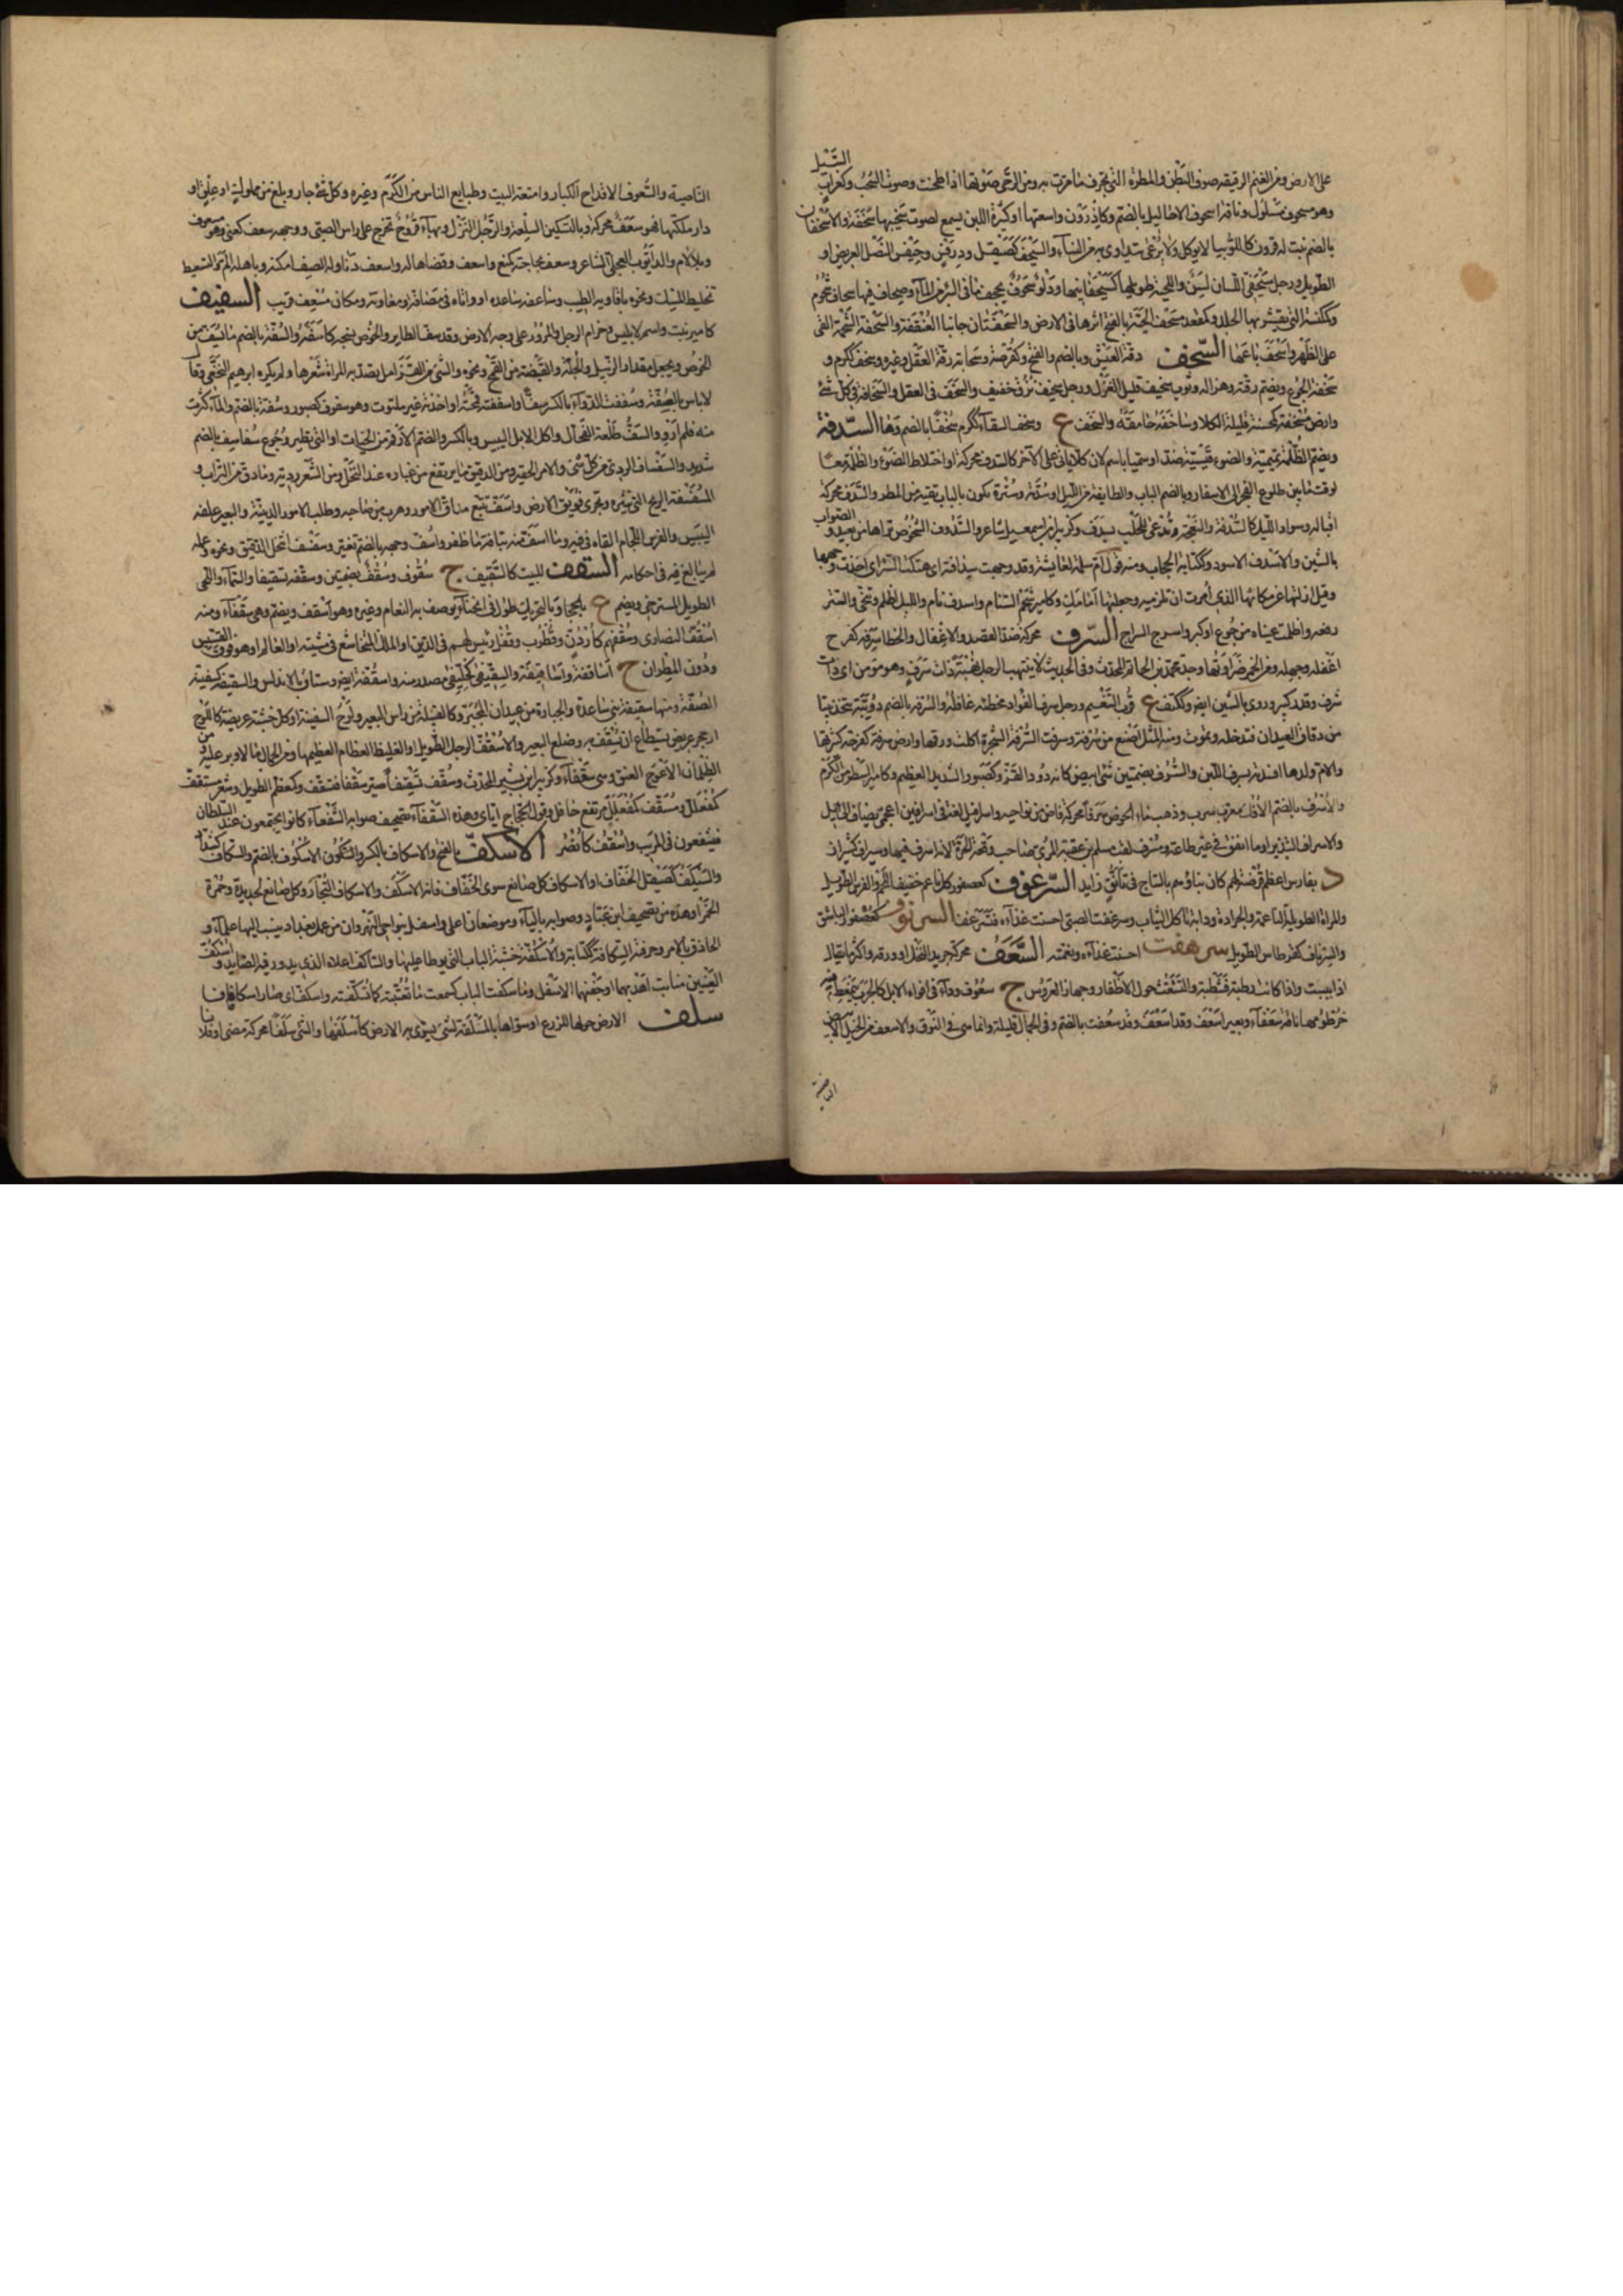 على الارض ومن الغنم الرقيقة صوف البطن والمطرة التي تجرف ما مرت به ومن الرحى صوتها اذا طحنت وصوت الشخب وكغراب السل
وهو مسحوف مسلول وناقة اسحوف الاحاليل بالضم وكإدرون واسعتها او كثيرة اللبن يسمع لصوت شخبها سحفة والاسحفان
بالضم نبت له قرون كاللوبيا لا يوكل ولا يرعى يتداوى به من النساء والسيحف كصيقل ودرفس وحيفس النصل العريض او
الطويل ورجل سيحفي اللسان لسن واللحية طويلها كسيحفانيها ودلو سحوف يجحف ما في البئر من الماء
وككنسة التي يقشر بها الجلد وكمقعد مسحف الحية بالفتح اثرها في الارض والسحفتان جانبا العنفقة والسحفة الشحمة التي
على الظهر واسحف باعها السخف رقة العيش وبالضم والفتح وكقرصة وسحابة رقة العقل وغيره وسخف ككرم
سخفة الجوع ويضم رقته وهزاله وثوب سخيف قليل الغزل ورجل سخيف نزق خفيف والسخف في العقل والسخافة في كل شئ
وارض مسخفة كمحسنة قليلة الكلأ وساخفه حامقه والسخف ع وسخف السقاء ككرم سخفا بالضم وهى السدفة
ويضم الظلمة تميمية والضوء قيسية ضد او سميا باسم لان كلا ياتي على الاخر كالسدف محركة او اختلاط الضوء والظلمة معا
لوقت ما بين طلوع الفجر الى الاسفار وبالضم الباب والطائفة من الليل او سدته وسترة تكون بالباب تقيه من المطر والسدف محركة
اقباله وسواد الليل كالسدفة والنعجة وتدعى للحلب بسدف وكزبير ابن اسمعيل شاعر والسدوف الشخوص تراها من بعيد والصواب
بالشين والاسدف الاسود وككتابة الحجاب ومنه قول ام سلمة لعايشة وقد وجهت سدافته اى هتكت الستر اى اخذت وجهها
وقيل ازلتها عن مكانها الذي امرت ان تلزميه وجعلتها امامك وكامير شحم السنام واسدف نام والليل اظلم وتنحى والستر
رفعه واظلمت عيناه من جوع او كبر واسرج السراج السرف محركة ضد القصد والاغفال والخطا سرفه كفرح
اغفله وجهله ومن الخمر ضراوتها وجد محمد بن حاتم المحدث وفي الحديث لا ينتهب الرجل نهبة ذات سرف وهو مومن اى ذات
شرف وقدر كبير وروى بالشين ايضا وككتف ع قرب التنعيم ورجل سرف الفؤاد مخطئه غافله والسرفة بالضم دويبة تتخذ بيتا
من دقاق العيدان فتدخله وتموت ومنه المثل اصنع من سرفة وسرفت السرفة الشجرة اكلت ورقها وارض سرفة كفرحة كثيرتها
والام ولدها افسدته بسرف اللبن والسرف بضمتين شئ ابيض كانه دود القز وكصبور الشديد العظيم وكامير السطر من الكرم
والاسرف بالضم الآنك معرب سرب وذهب ماء الحوض سرفا محركة فاض من نواحيه واسرافيل لغة في اسرافين اعجمى مضاف الى ايل
والاسراف التبذير او ما انفق في غير طاعة ومسرف لقب مسلم بن عقبة المرى صاحب وقعة الحرة لانه اسرف فيها وسيراف كشيراز
د بفارس اعظم فرضة لهم كان بناؤهم بالساج في تانق زايد السرعوف كعصفور كل ناعم خفيف اللحم والفرس الطويل
والمراة الطويلة الناعمة والجرادة ودابة تاكل الثياب وسرعفت الصبي احسنت غذاءه فتسرعف السرنوف كعصفور الباشق
والسرناف كقرطاس الطويل سرهفت احسنت غذاءه ونعمته السعف محركة جريد النخل او ورقه واكثر ما يقال
اذا يبست واذا كانت رطبة فشطبة والتشعث حول الاظفار وجهاز العروس ج سعوف وداء في افواه الابل كالجرب يتمعط منه
خرطومها ناقة سعفاء وبعير اسعف وقد اسعف وقد سعفت بالضم وفي الجمال قليلة وانما هي في النوق والاسعف من الخيل الابيض
الناصية
الناصية والسعوف الاقداح الكبار وامتعة البيت وطبايع الناس من الكرم وغيره وكل شئ جاد وبلغ من مملوك او علق او
دار ملكتها فهو سعف محركة وبالتسكين السلعة والرجل النزل وبهاء قروح تخرج على راس الصبي ووجهه سعف كعنى وهو مسعوف
وبلا لام والد ايوب العجلي الشاعر وسعف بحاجته كمنع واسعف وقضاها له واسعف دنا وله الصيد امكنه وباهله الم والتسعيف
تخليط المسك ونحوه بافاويه الطيب وساعفه ساعده او واتاه في مصافاة ومعاونة ومكان مسعف قريب السفيف
كامير نبت واسم لابليس وحزام الرحل والمرور على وجه الارض وقد سف الطاير والخوص نسجه كاسفه والسفة بالضم ما يسف من
الخوص ويجعل مقدار الزبيل والجلة والقبضة من القمح ونحوه وشئ من القرامل تصله المراة شعرها ولم يكره ابراهيم النخعي وقال
لا باس بالسفة وسففت الدواء بالكسر سفا واستففته قمحته او اخذته غير ملتوت وهو سفوف كصبور وسفة بالضم والماء اكثرت
منه فلم ارو والسف طلعة الفحال واكل الابل اليبيس وبالكسر والضم الارقم من الحيات او التي تطير وجوع سفاسف بالضم
شديد والسفساف الردى من كل شئ والامر الحقير ومن الدقيق ما يرتفع من غباره عند النخل ومن الشعر رديه وما دق من التراب و
المسفسفة الريح التي تثيره وتجرى فويق الارض واسف تتبع مداق الامور وهرب من صاحبه وطلب الامور الدنيئة والبعير علفه
اليبيس والفرس اللجام القاه في فيه وما اسف منه بتافه ما ظفر واسف وجهه بالضم تغير وسفسف انتحل الدقيق ونحوه وعمله
لم يبالغ في احكامه السقف للبيت كالسقيف ج سقوف وسقف بضمتين وسقفه تسقيفا والسماء واللحى
الطويل المسترخى ويضم ع وبالتحريك طول في انحناء يوصف به النعام وغيره وهو اسقف ويضم وهى سقفاء ومنه
اسقف النصارى وسقفهم كاردن وقطرب وقفل رئيس لهم في الدين او الملك المتخاشع في مشيته او العالم او هو فوق القسيس
ودون المطران ج اساقفة واساقف والسقيفى كخليفى مصدر منه واسقفة ايضا رستاق بالاندلس والسقيفة كسفينة
الصفة ومنها سقيفة بني ساعدة والجبارة من عيدان المجبر وكالقبيلة من راس البعير ولوح السفينة او كل خشبة عريضة كاللوح
او حجر عريض يستطاع ان يسقف به وضلع البعير والاسقف الرجل الطويل والغليظ العظام العظيمها ومن الجمال ما لا وبر عليه ومن
الظلمان الاعوج العنق وهى سقفاء وكزبير ابن بشير المحدث وسقف تسقيفا صير سقفا فتسقف وكمعظم الطويل وشعر مستقف
كمفعلل ومسقف كمفعلل مرتفع جافل وقول الحجاج اياى وهذه السقفاء تصحيف صوابه الشفعاء كانوا يجتمعون عند السلطان
فيشفعون في المريب واسقف كانصر الاسكف بالفتح والاسكاف بالكسر والاسكوف بالضم والسكاف كشداد
والسيكف كصيقل الخفاف او الاسكاف كل صانع سوى الخفاف فانه الاسكف والاسكاف النجار وكل صانع بحديدة وحمرة
الخمر وهذه من تصحيف ابن عباد وصوابه بالباء وموضعان اعلى واسفل بنواحي النهروان من عمل بغداد ينسب اليها علماء و
الحاذق بالامر وحرفته السكافة ككتابة والاسكفة خشبة الباب التي يوطا عليها والساكف اعلاه الذي يدور فيه الصاير واسكف
العينين منابت اهدابهما او جفنهما الاسفل وما سكفت الباب كسمعت ما تعتبته كاتسكفته واسكف اى صار اسكافا
سلف الارض حولها للزرع او سواها بالمسلفة لشئ يسوى به الارض كاسلفها والشئ سلفا محركة مضى وفلان